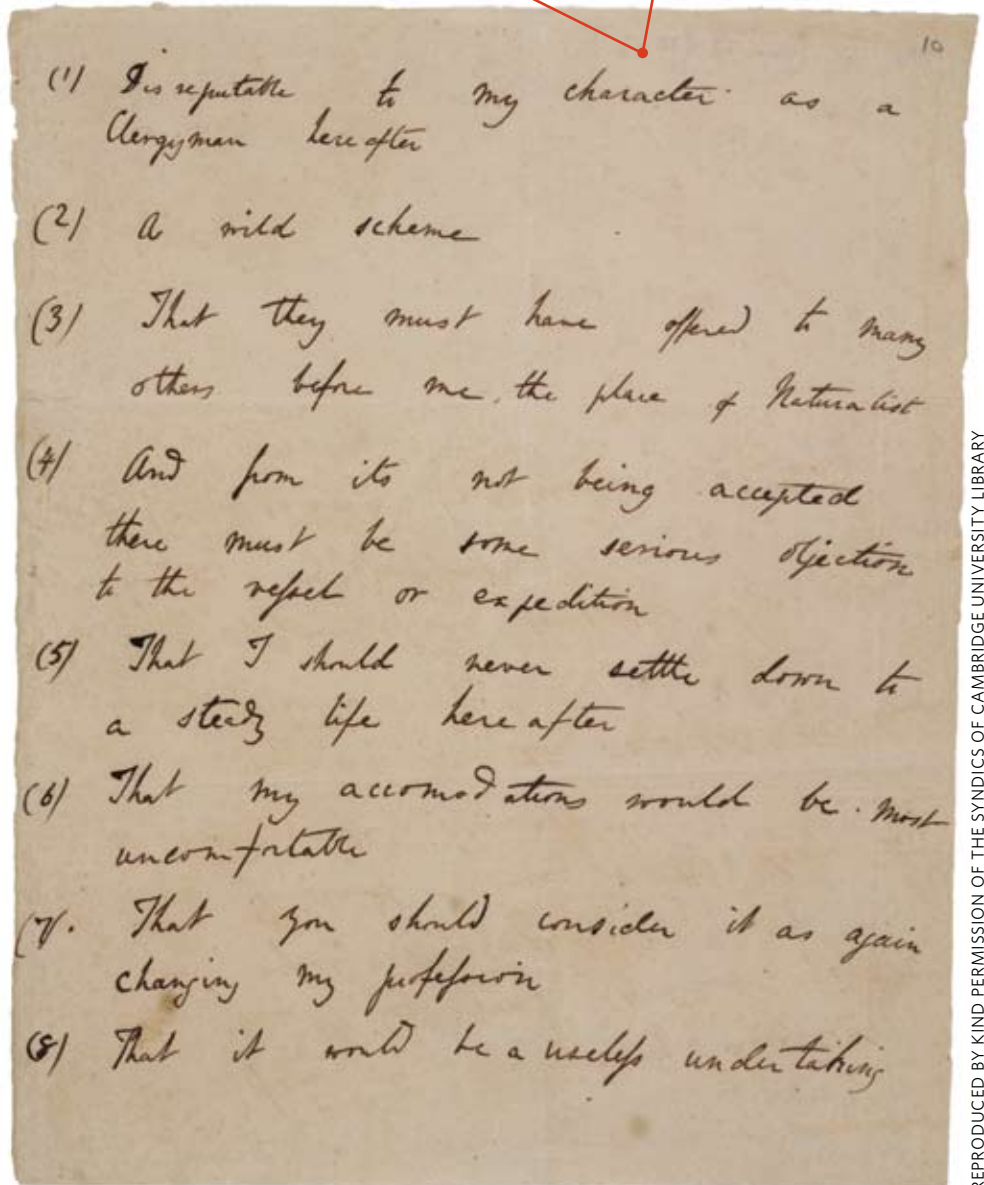 10
(1) Disreputable to my character as a
Clergyman hereafter
(2) A wild scheme
(3) That they must have offered to many
others before me, the place of Naturalist
(4) And from its not being accepted
there must be some serious objection
to the vessel or expedition
(5) That I should never settle down to
a steady life hereafter
(6) That my accomodations would be most
uncomfortable
(7). That you should consider it as again
changing my profession
(8) That it would be a useless undertaking
REPRODUCED BY KIND PERMISSION OF THE SYNDICS OF CAMBRIDGE UNIVERSITY LIBRARY